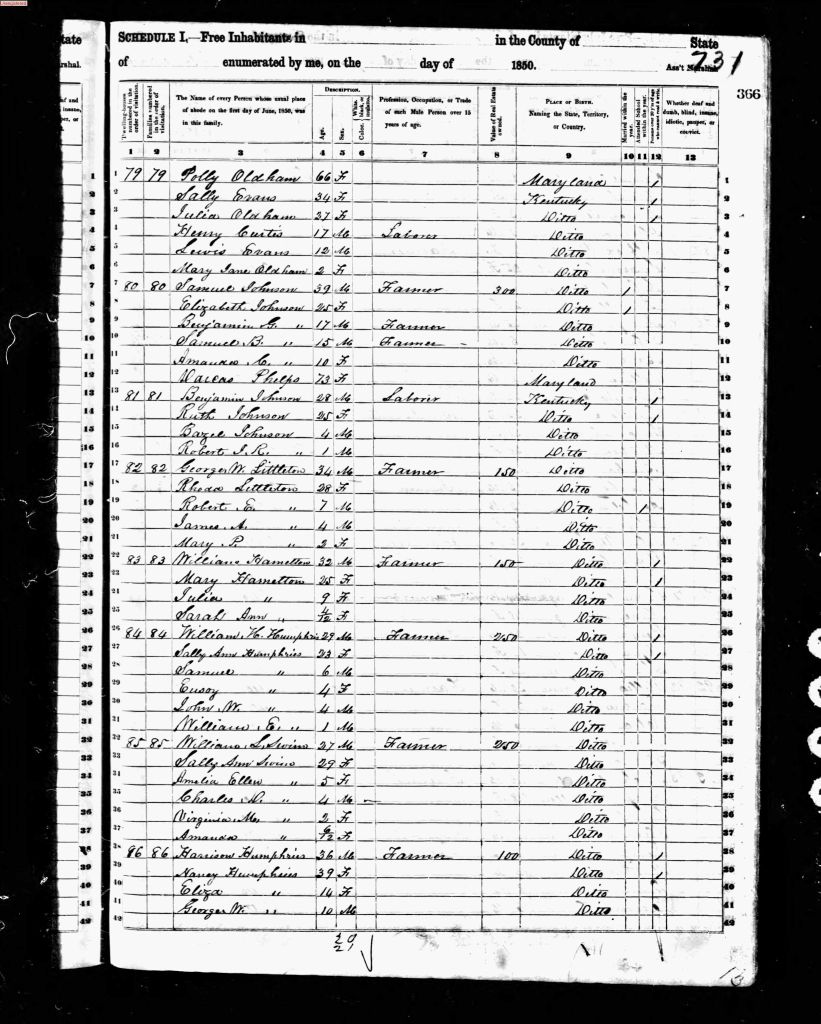 SCHEDULE I.—Free Inhabitants in in the County of State
of enumerated by me, on the day of 1850. Ass't Marshal.
731
366
Dwelling-houses numbered in the order of visitation.
Families numbered in the order of visitation.
The Name of every Person whose usual place of abode on the first day of June, 1850, was in this family.
DESCRIPTION.
Age.
Sex.
Color, White, black, or mulatto.
Profession, Occupation, or Trade of each Male Person over 15 years of age.
Value of Real Estate owned.
PLACE OF BIRTH. Naming the State, Territory, or Country.
Married within the year.
Attended School within the year.
Whether deaf and dumb, blind, insane, idiotic, pauper, or convict.
1 2 3 4 5 6 7 8 9 10 11 12 13
1 79 79 Polly Oldham 66 F Maryland 1 1
2 Sally Evans 34 F Kentucky 1 2
3 Julia Oldham 37 F Ditto 1 3
4 Henry Curtis 17 M Laborer Ditto 4
5 Lewis Evans 12 M Ditto 5
6 Mary Jane Oldham 2 F Ditto 6
7 80 80 Samuel Johnson 39 M Farmer 300 Ditto 1 7
8 Elizabeth Johnson 25 F Ditto 1 8
9 Benjamin G. " 17 M Farmer Ditto 9
10 Samuel B. " 15 M Farmer - Ditto 10
11 Amanda C. " 10 F Ditto 11
12 Darcas Phelps 73 F Maryland 12
13 81 81 Benjamin Johnson 28 M Laborer Kentucky 1 13
14 Ruth Johnson 25 F Ditto 1 14
15 Bazel Johnson 4 M Ditto 15
16 Robert J. R. " 1 M Ditto 16
17 82 82 George W. Littleton 34 M Farmer 150 Ditto 17
18 Rhoda Littleton 28 F Ditto 18
19 Robert E. " 7 M Ditto 1 19
20 James A. " 4 M Ditto 20
21 Mary P. " 2 F Ditto 21
22 83 83 William Hamelton 32 M Farmer 150 Ditto 1 22
23 Mary Hamelton 25 F Ditto 1 23
24 Julia " 9 F Ditto 24
25 Sarah Ann " 4/12 F Ditto 25
26 84 84 William H. Humphries 29 M Farmer 250 Ditto 1 26
27 Sally Ann Humphries 23 F Ditto 1 27
28 Samuel " 6 M Ditto 28
29 " 4 F Ditto 29
30 John W. " 4 M Ditto 30
31 William E. " 1 M Ditto 31
32 85 85 William L. 27 M Farmer 250 Ditto 32
33 Sally Ann 29 F Ditto 33
34 Amelia Ellen " 5 F Ditto 34
35 Charles " 4 M Ditto 35
36 Virginia M. " 2 F Ditto 36
37 Amanda " 6/12 F Ditto 37
38 86 86 Harrison Humphries 36 M Farmer 100 Ditto 1 38
39 Nancy Humphries 39 F Ditto 1 39
40 Eliza " 14 F Ditto 40
41 George W. " 10 M Ditto 41
42 42